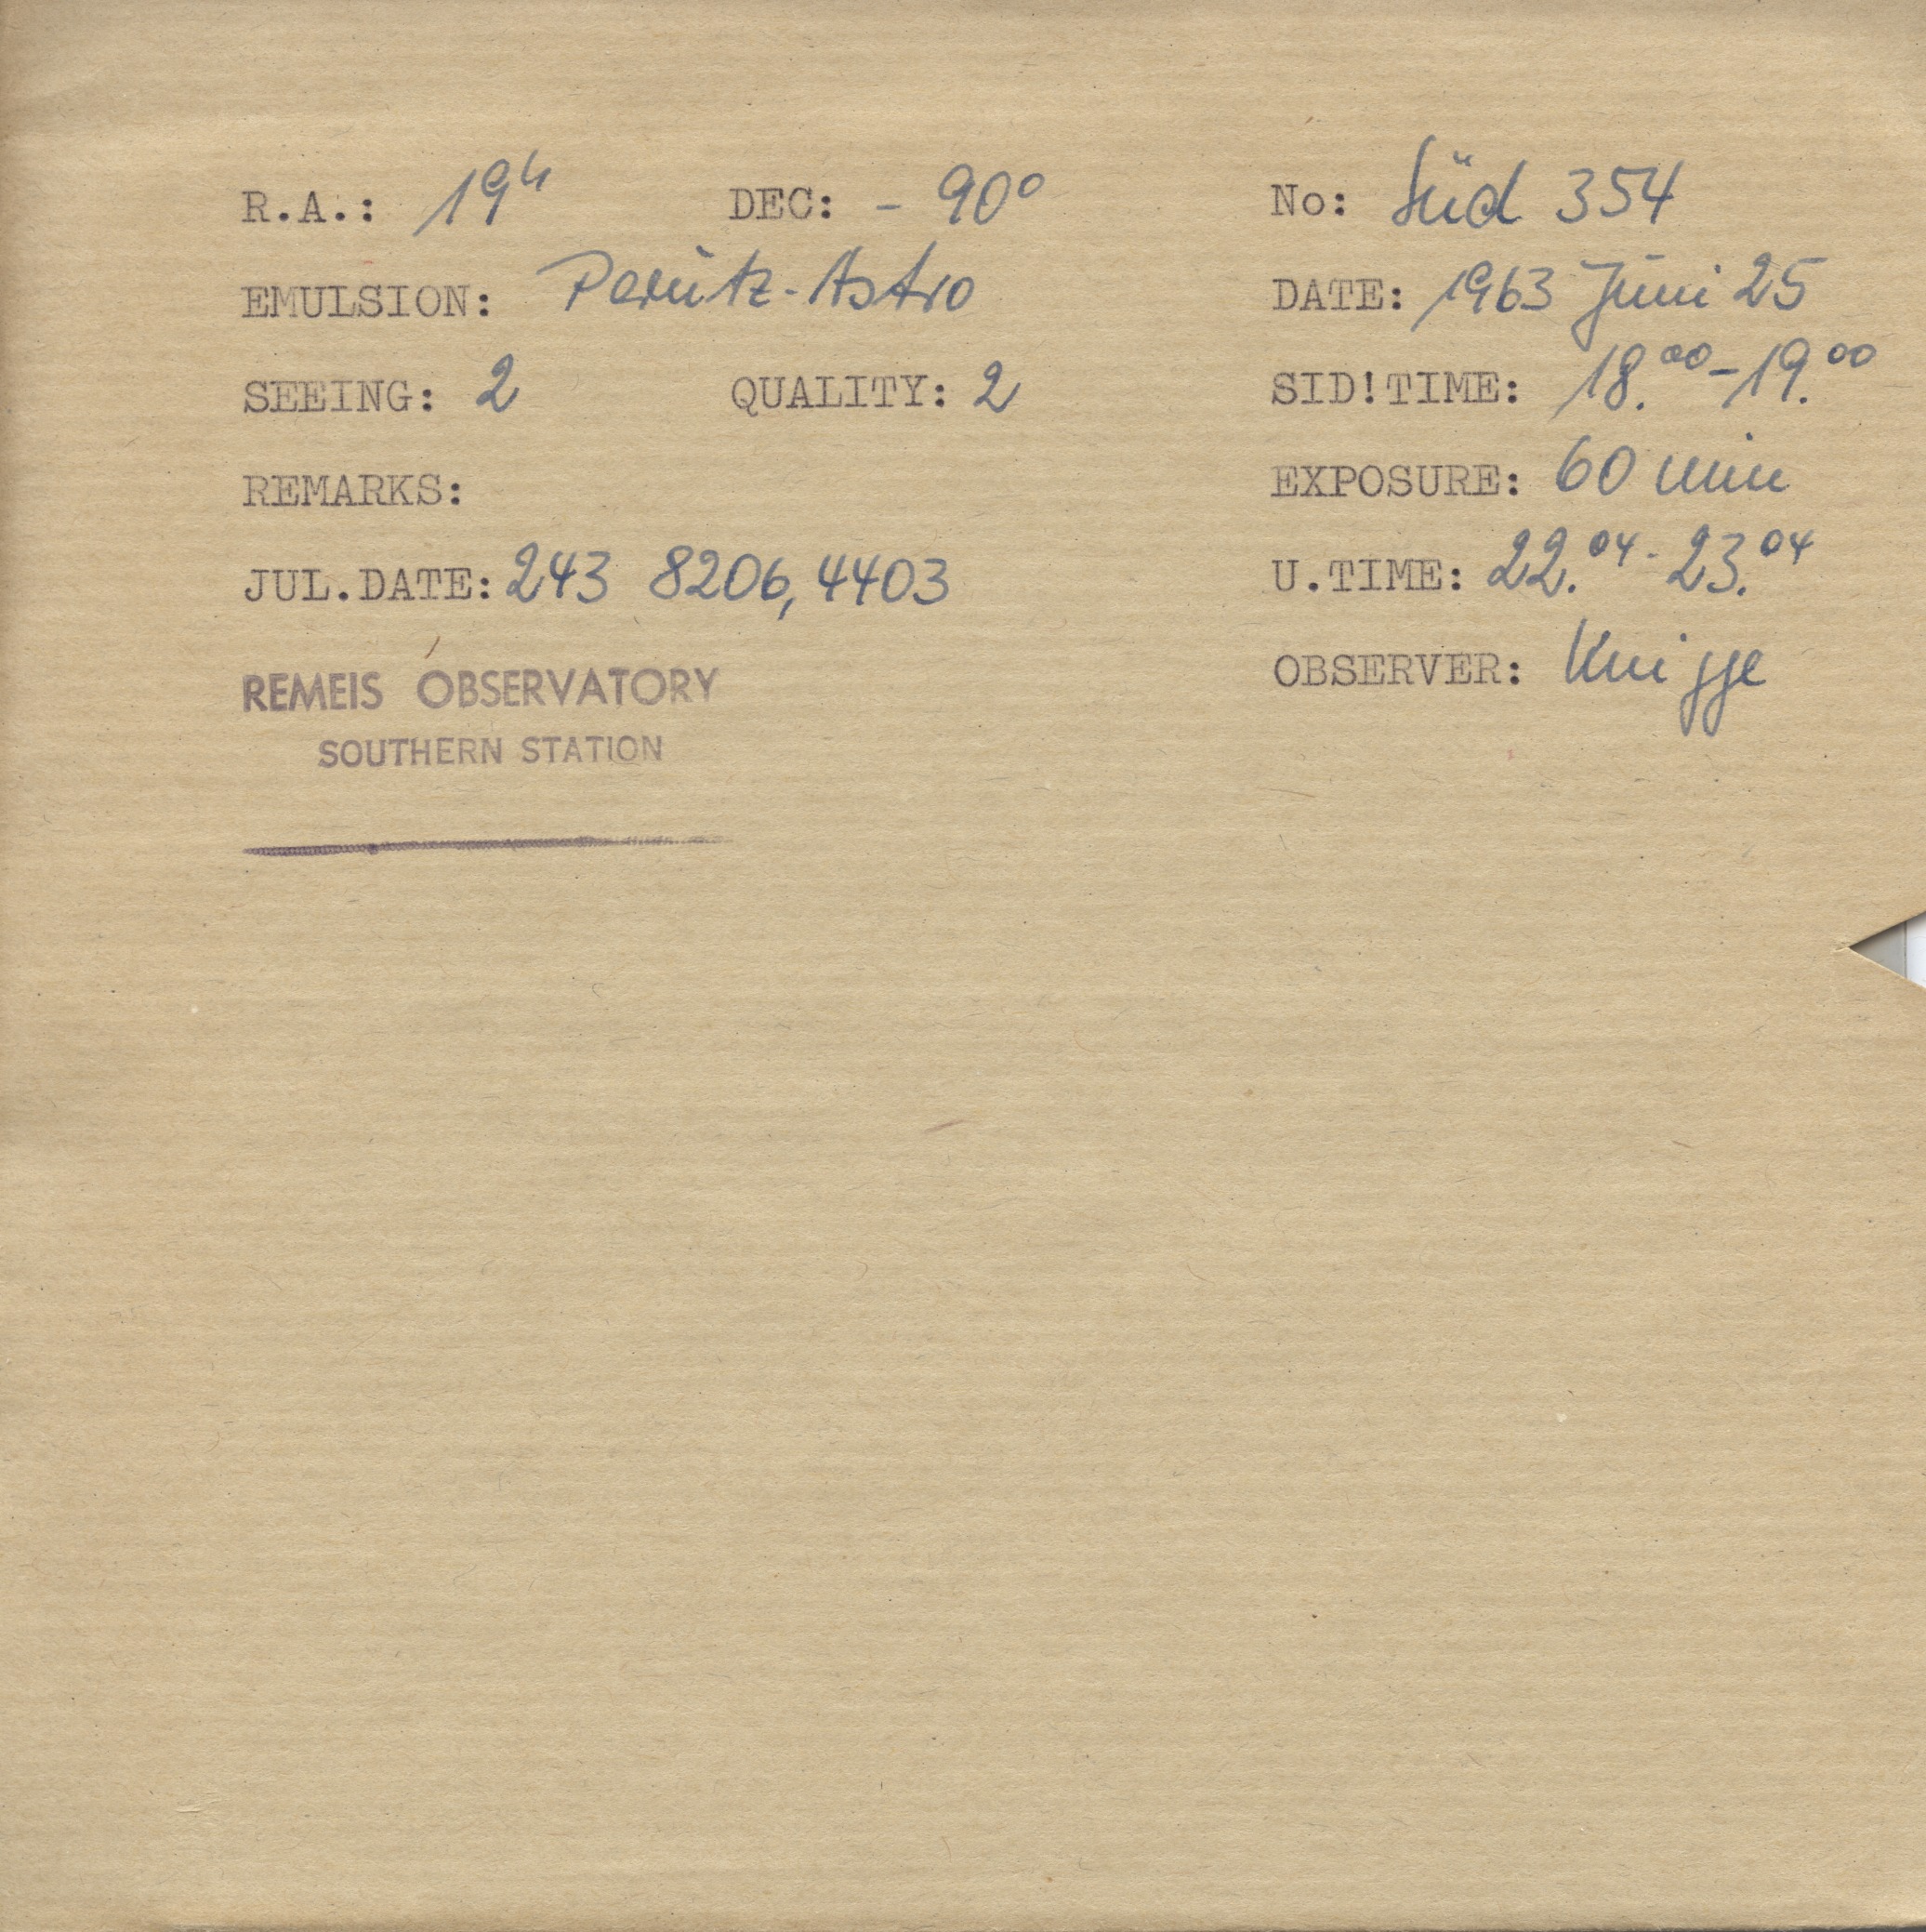 R.A.: 19h DEC: - 90° No: Süd 354
EMULSION: Perutz-Astro DATE: 1963 Juni 25
SEEING: 2 QUALITY: 2 SID!TIME: 18.00-19.00
REMARKS: EXPOSURE: 60 min
JUL.DATE: 243 8206,4403 U.TIME: 22.04-23.04
REMEIS OBSERVATORY OBSERVER: Knigge
SOUTHERN STATION